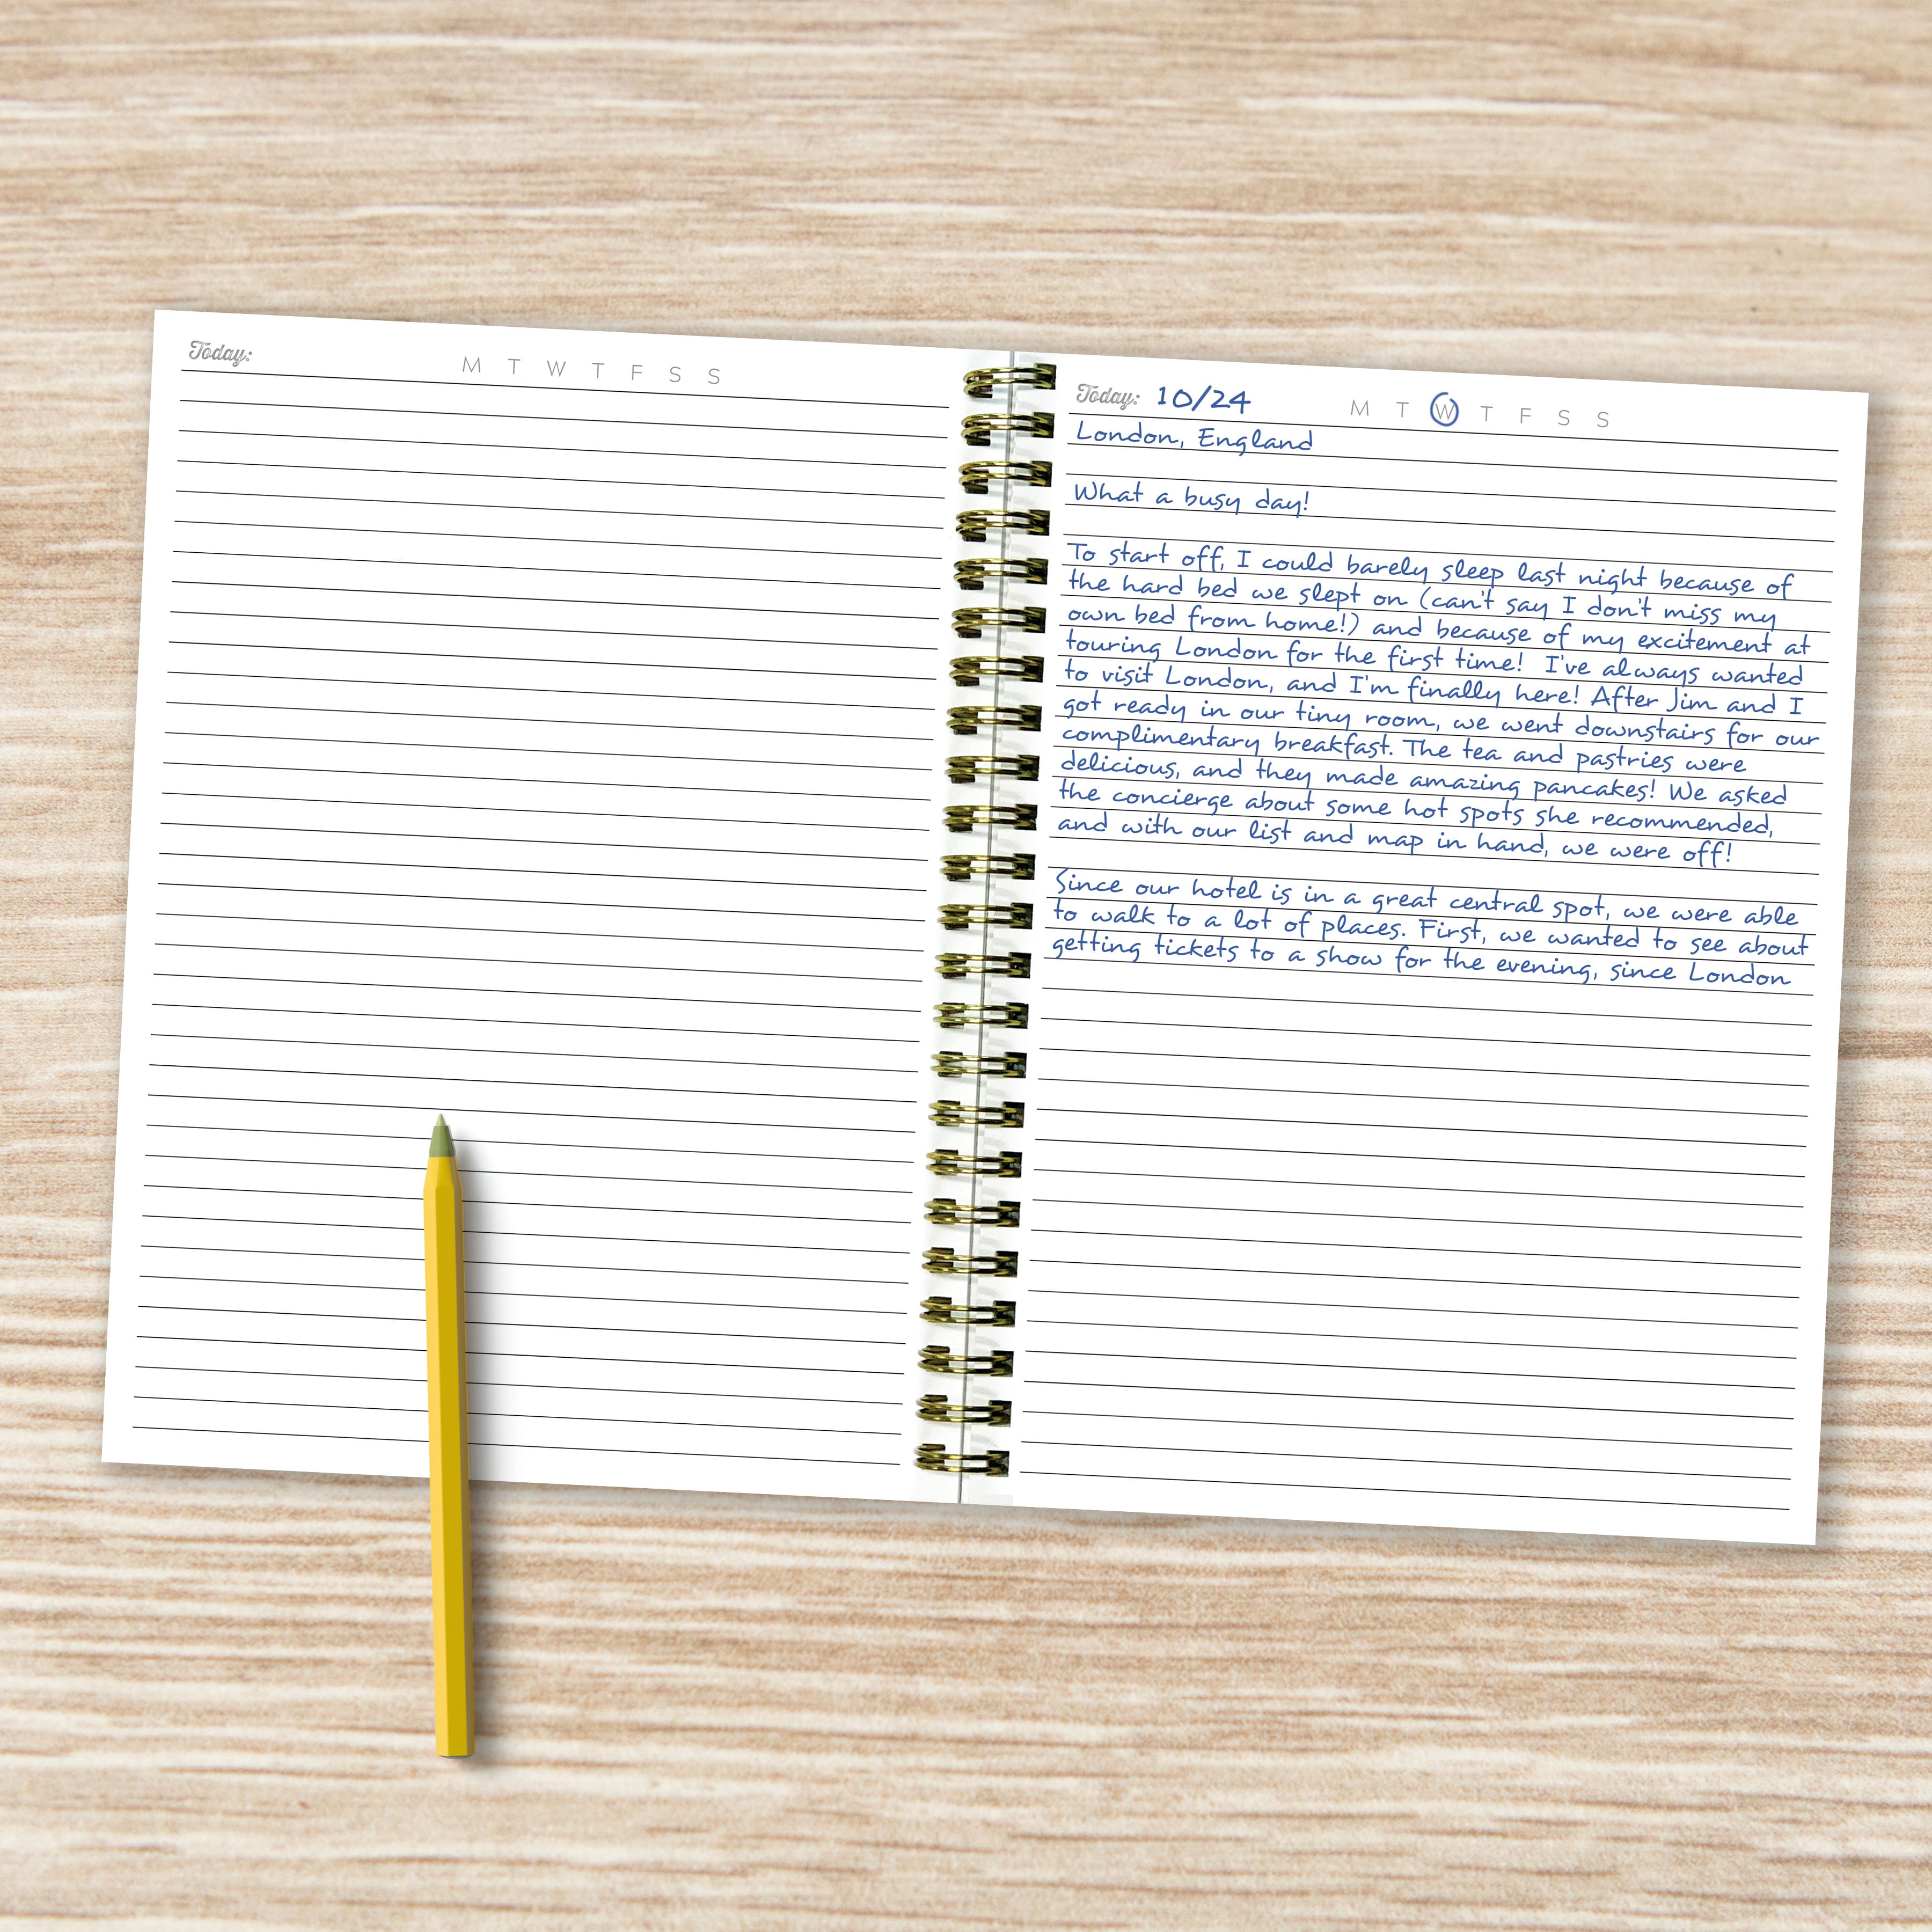 Today:
M T W T F S S
Today: 10/24
M T W T F S S
London, England
What a busy day!
To start off, I could barely sleep last night because of
the hard bed we slept on (can't say I don't miss my
own bed from home!) and because of my excitement at
touring London for the first time! I've always wanted
to visit London, and I'm finally here! After Jim and I
got ready in our tiny room, we went downstairs for our
complimentary breakfast. The tea and pastries were
delicious, and they made amazing pancakes! We asked
the concierge about some hot spots she recommended,
and with our list and map in hand, we were off!
Since our hotel is in a great central spot, we were able
to walk to a lot of places. First, we wanted to see about
getting tickets to a show for the evening, since London